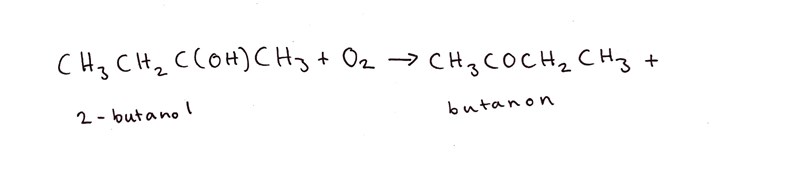 CH₃CH₂C(OH)CH₃ + O₂ → CH₃COCH₂CH₃ +
2-butanol butanon